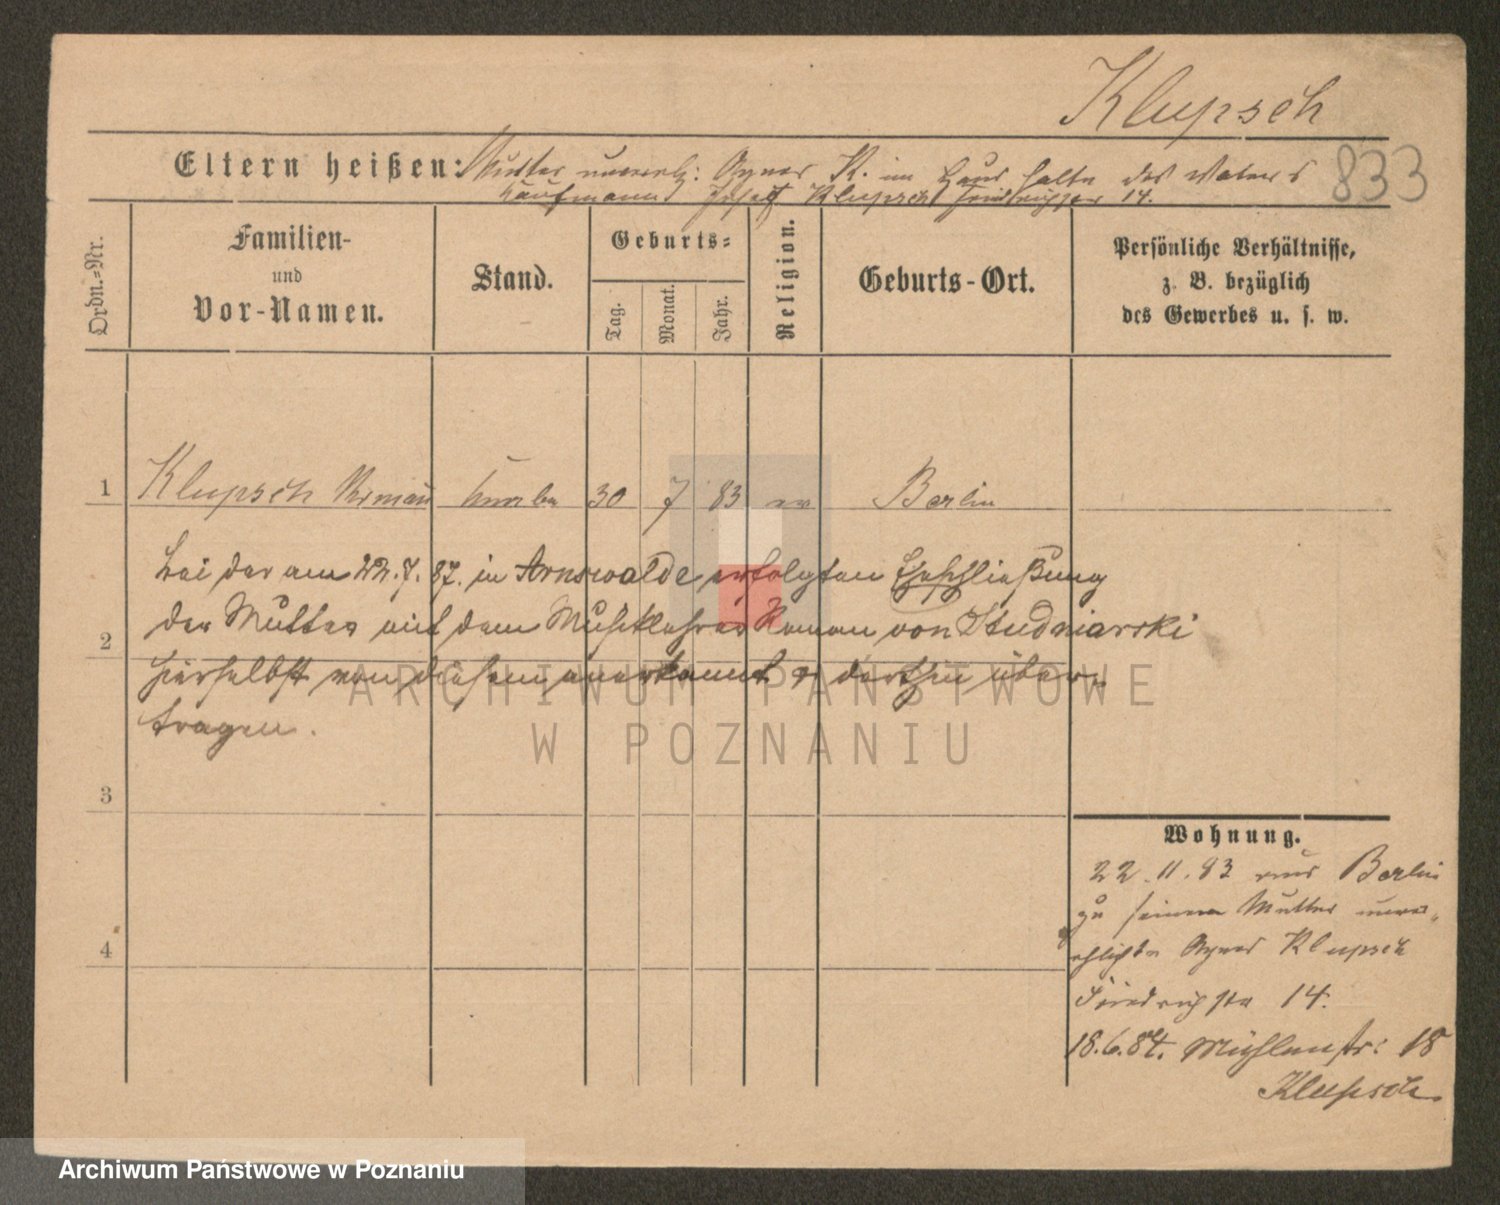 Klupsch
Eltern heißen: Mutter unverh: Agnes K. im Haushalte des Vaters
Kaufmann Josef Klupsch Friedrichstr 14.
833
Ordn.-Nr.
Familien-
und
Vor-Namen.
Stand.
Geburts-
Tag.
Monat.
Jahr.
Religion.
Geburts-Ort.
Persönliche Verhältnisse,
z. B. bezüglich
des Gewerbes u. s. w.
1 Klupsch 30 7 83 ev Berlin
bei der am 22.7.87. in Arnswalde erfolgten Eheschließung
2 der Mutter mit dem Musiklehrer Roman von Studniarski
hierselbst von diesem anerkannt & dorthin über-
tragen.
3
4
Wohnung.
22.11.83 aus Berlin
zu seiner Mutter unver-
ehlichte Agnes Klupsch
Friedrichstr 14.
18.6.84. Mühlenstr: 18
Klupsch.
ARCHIWUM PAŃSTWOWE
W POZNANIU
Archiwum Państwowe w Poznaniu